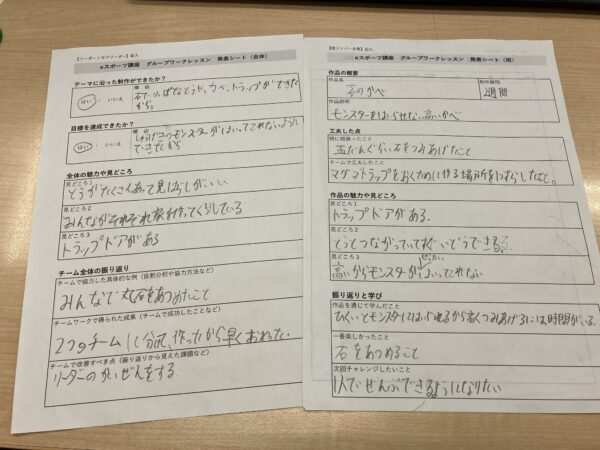 【リーダー／サブリーダー】記入
eスポーツ講座　グループワークレッスン　発表シート（全体）
テーマに沿った制作ができたか？
はい・いいえ
理由
石でりっぱなとうと、かべ、トラップができたから。
目標を達成できたか？
はい・いいえ
理由
モンスターがはいってこれないようにできたから
全体の魅力や見どころ
見どころ1
とうがたくさんあって見はらしがいい
見どころ2
みんながそれぞれ家を作ってくらしている
見どころ3
トラップドアがある
チーム全体の振り返り
チームで協力した具体的な例（役割分担や協力方法など）
みんなで丸石をあつめたこと
チームワークで得られた成果（チームで成功したことなど）
2つのチームに分かれ、作ったから早くおわった。
チームで改善すべき点（振り返りから見えた課題など）
リーダーのかいぜんをする
eスポーツ講座　グループワークレッスン　発表シート（班）
作品の概要
作品名
石のかべ
制作期間
2週間
作品説明
モンスターをはいらせない高いかべ
工夫した点
特に頑張ったこと
五だんぐらい石をつみあげたこと
チームで工夫したこと
マグマトラップをおくために作る場所をいすらしたこと。
作品の魅力や見どころ
見どころ1
トラップドアがある.
見どころ2
とうとつながっていてすぐいどうできる.
見どころ3
高いからモンスターがぜったいはいってこれない
振り返りと学び
作品を通じて学んだこと
ひくいとモンスターにはいられるから高くつみあげるには時間がいる.
一番楽しかったこと
石をあつめること
次回チャレンジしたいこと
1人でぜんぶできるようになりたい